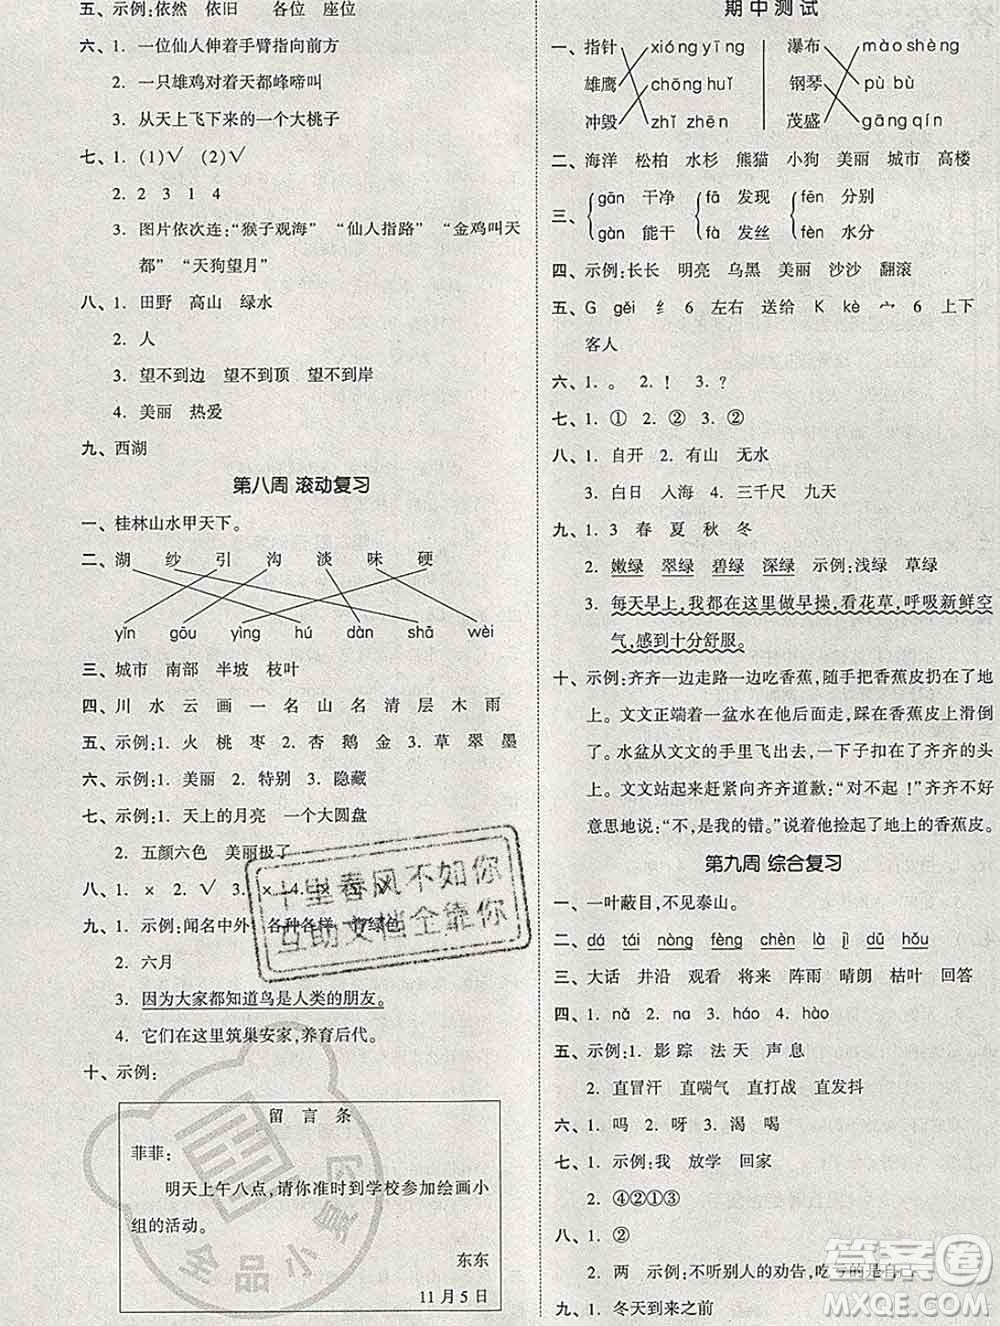 五、示例:依然 依旧 各位 座位
六、1. 一位仙人伸着手臂指向前方
2. 一只雄鸡对着天都峰啼叫
3. 从天上飞下来的一个大桃子
七、1. (1)√ (2)√
2. 2 3 1 4
3. 图片依次连:“猴子观海” “仙人指路” “金鸡叫天
都” “天狗望月”
八、1. 田野 高山 绿水
2. 人
3. 望不到边 望不到顶 望不到岸
4. 美丽 热爱
九、西湖
第八周 滚动复习
一、桂林山水甲天下。
二、湖 纱 引 沟 淡 味 硬
yǐn gōu yìng hú dàn shā wèi
三、城市 南部 半坡 枝叶
四、川 水 云 画 一 名 山 名 清 层 木 雨
五、示例:1. 火 桃 枣 2. 杏 鹅 金 3. 草 翠 墨
六、示例:1. 美丽 2. 特别 3. 隐藏
七、示例:1. 天上的月亮 一个大圆盘
2. 五颜六色 美丽极了
八、1. × 2. √ 3. × 4. × 5. ×
九、1. 示例:闻名中外 各种各样 绿色
2. 六月
3. 因为大家都知道鸟是人类的朋友。
4. 它们在这里筑巢安家,养育后代。
十、示例:
留 言 条
菲菲:
明天上午八点,请你准时到学校参加绘画小
组的活动。
东东
11月5日
期中测试
一、指针 xióng yīng 瀑布 mào shèng
雄鹰 chōng huǐ 钢琴 pù bù
冲毁 zhǐ zhēn 茂盛 gāng qín
二、海洋 松柏 水杉 熊猫 小狗 美丽 城市 高楼
三、gān 干净 fā 发现 fēn 分别
gàn 能干 fà 发丝 fèn 水分
四、示例:长长 明亮 乌黑 美丽 沙沙 翻滚
五、G gěi 纟 6 左右 送给 K kè 宀 6 上下
客人
六、1. 。 2. ! 3. ?
七、1. ① 2. ② 3. ②
八、1. 自由 召开 2. 有山 无水
3. 白日 入海 4. 三千尺 九天
九、1. 3 春 夏 秋 冬
2. 嫩绿 翠绿 碧绿 深绿 示例:浅绿 草绿
3. 每天早上,我都在这里做早操,看花草,呼吸新鲜空
气,感到十分舒服。
十、示例:齐齐一边走路一边吃香蕉,随手把香蕉皮扔在了地
上。文文正端着一盆水走在后面,踩在香蕉皮上滑倒
了。水盆从文文的手里飞出去,一下子扣在了齐齐的头
上。文文站起来赶紧向齐齐道歉:“对不起!”齐齐不好
意思地说:“不,是我的错。”说着他捡起了地上的香蕉皮。
第九周 综合复习
一、一叶蔽目,不见泰山。
二、dá tái nòng fèng chèn jì dǔ hǒu
三、大话 井沿 观看 将来 阵雨 晴朗 枯叶 回答
四、1. nǎ 2. na 3. háo 4. hào
五、示例:1. 影 踪 法 天 声 息
2. 直冒汗 直喘气 直打战 直发抖
六、1. 吗 2. 呀 3. 渴 喝
七、1. 示例:我 放学 回家
2. ④②①③
八、1. ②
2. 两 示例:不听别人的劝告,吃亏的是自己
九、1. 冬天到来之前
十里春风不如你
互助文档全靠你
全品小复习
答案圈
MXQE.COM